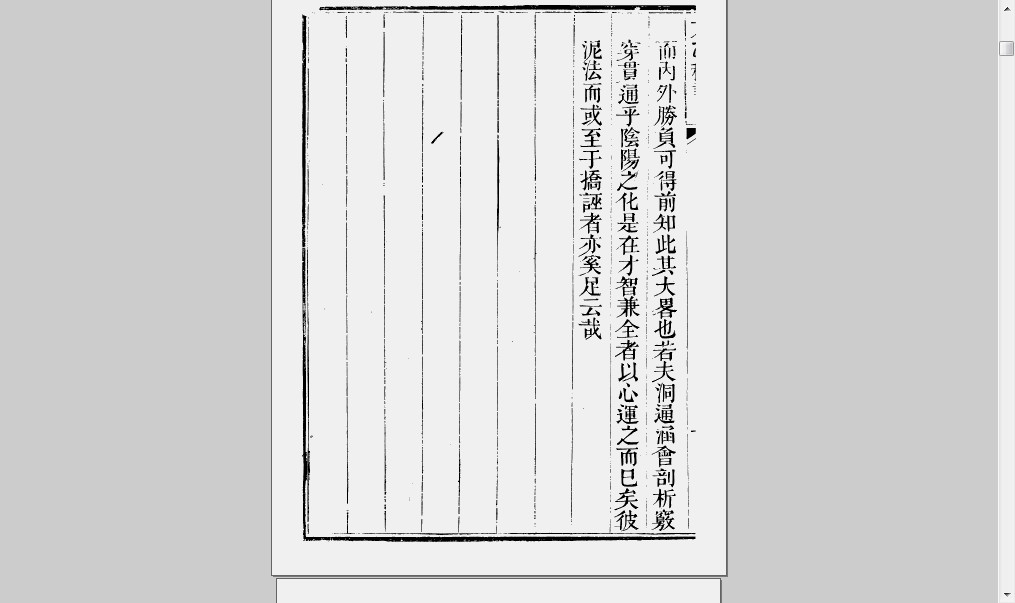 而內外勝負可得前知此其大畧也若夫洞通涵會剖析竅
穿貫通乎陰陽之化是在才智兼全者以心運之而巳矣彼
泥法而或至于撟誣者亦奚足云哉